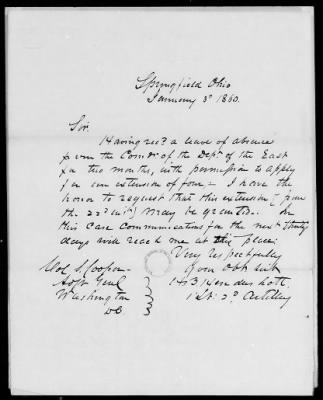 Springfield Ohio
January 3d 1860.
Sir.
Having recd a leave of absence
from the Comdr of the Dept of the East
for two months, with permission to apply
for an extension of four – I have the
honor to request that this extension (from
the 23d inst) may be granted. In
this case communications for the next thirty
days will reach me at this place.
Very respectfully
Your Obt Svt
1st Lt 2d Artillery
Col S. Cooper
Adjt Genl
Washington
DC